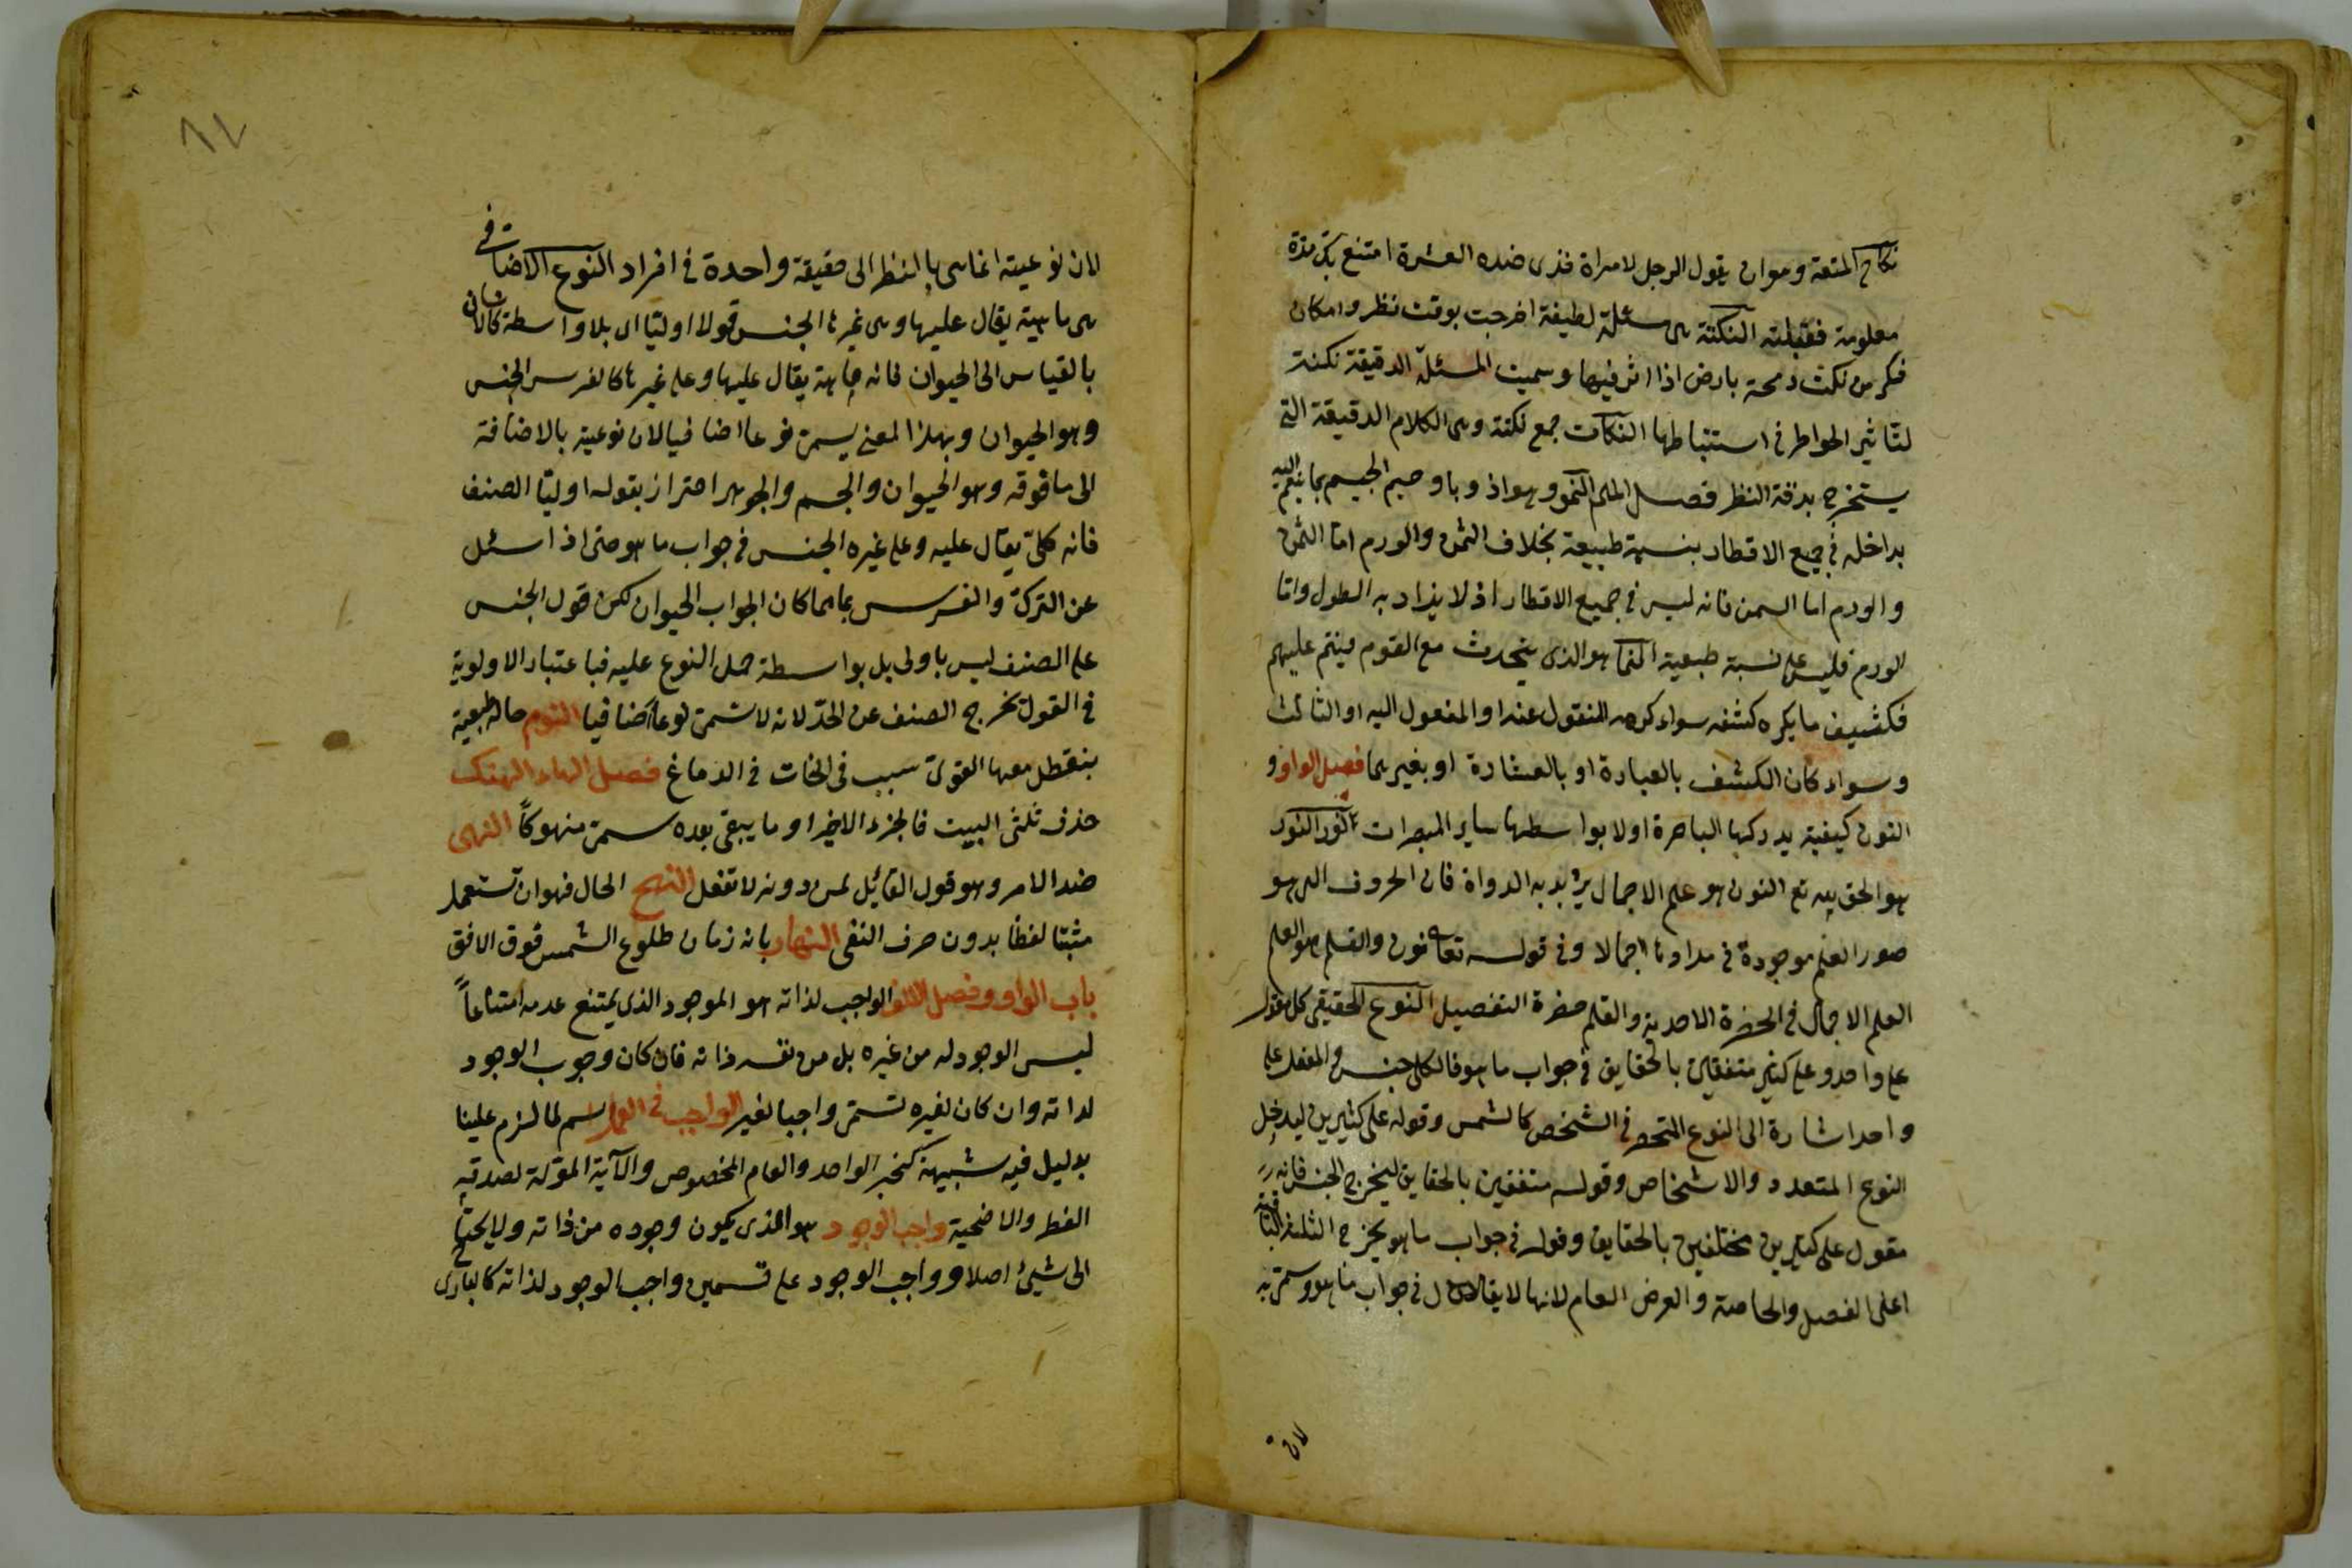 نكاح المتعة وهو ان يقول الرجل لامراة خذى هذه العشرة اتمتع بك مدة
معلومة فقبلته النكتة هى مسئلة لطيفة اخرجت بوقت نظر وامكان
فكر من نكت رمحه بارض اذا اثر فيها وسميت المسئلة الدقيقة نكتة
لتاثير الخواطر فى استنباطها النكات جمع نكتة وهى الكلام الدقيقة التى
يستخرج بدقة النظر فصل الميم النمو وهو ازدياد حجم الجسم بما ينضم اليه
يداخله فى جميع الاقطار بنسبة طبيعة بخلاف السمن والورم اما السمن
والورم اما السمن فانه ليس فى جميع الاقطار اذ لا يزاد به الطول واما
الورم فليس على نسبة طبيعية النمام هو الذى يتحدث مع القوم فينم عليهم
فكشيف ما يكره كشفه سواء كرهه المنقول عنه او المنقول اليه او الثالث
وسواء كان الكشف بالعبارة او بالاشارة او بغيرهما فصل الواو و
النون كيفية يدركها الباصرة اولا بواسطها ساير المبصرات نور النور
هو الحق تع النون هو علم الاجمال يريد به الدواة فان الحروف التى هو
صور العلم موجودة فى مدادها اجمالا وفى قوله تعا نون والقلم هو العلم
العلم الاجمال فى الحضرة الاحدية والقلم حضرة التفصيل النوع الحقيقى كل مقول
على واحد وعلى كثير متفقين بالحقايق فى جواب ما هو فالكلى جنس والمقول على
واحد اشارة الى النوع المنحصر فى الشخص كالشمس وقوله على كثيرين ليدخل
النوع المتعدد والاشخاص وقوله متفقين بالحقايق ليخرج الجنس فانه
مقول على كثيرين مختلفين بالحقايق وقوله فى جواب ما هو يخرج الثلثة الباقية
اعلى الفصل والخاصة والعرض العام لانها لا يقال فى جواب ما هو وسمى به
لان
لان نوعيته انما هى بالنظر الى حقيقة واحدة فى افراد النوع الاضافى
هى ماهية يقال عليها وعلى غيرها الجنس قولا اوليا اى بلا واسطة كالانسان
بالقياس الى الحيوان فانه ماهية يقال عليها وعلى غيرها كالفرس الجنس
وهو الحيوان وبهذا المعنى يسمى نوعا اضافيا لان نوعية بالاضافة
الى ما فوقه وهو الحيوان والجسم والجوهر احتراز بقوله اوليا الصنف
فانه كلى يقال عليه وعلى غيره الجنس فى جواب ما هو حتى اذا سئل
عن التركى والفرس بما هما كان الجواب الحيوان لكن قول الجنس
على الصنف ليس باولى بل بواسطة حمل النوع عليه فباعتبار الاولوية
فى القول يخرج الصنف عن الحد لانه لا يسمى نوعا اضافيا النوم حالة طبيعية
يتعطل معها القوى بسبب فى الخات فى الدماغ فصل الهاء النهك
حذف ثلثى البيت فالجزء الاخير او ما يبقى بعده يسمى منهوكا النهى
ضد الامر وهو قول القائل لمن دونه لا تفعل النهج الحال فهو ان تستعمل
مثبتا لفظا بدون حرف النفى النهار بانه زمان طلوع الشمس فوق الافق
باب الواو وفصل الالف الواجب لذاته هو الموجود الذى يمتنع عدمه امتناعا
ليس الوجود له من غيره بل من نفس ذاته فان كان وجوب الوجود
لذاته وان كان لغيره تسمى واجبا لغير الواجب فى العمل اسم لما لزم علينا
بدليل فيه شبهة كخبر الواحد والعام المخصوص والآية المؤلة لصدقة
الفطر والاضحية واجب الوجود هو الذى يكون وجوده من ذاته ولا يحتاج
الى شيئ اصلا وواجب الوجود على قسمين واجب الوجود لذاته كالبارى